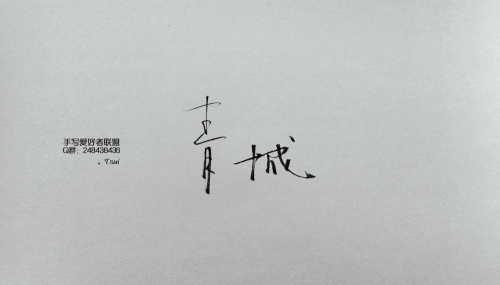 手写爱好者联盟
Q群：248438436
。Tsui
青城